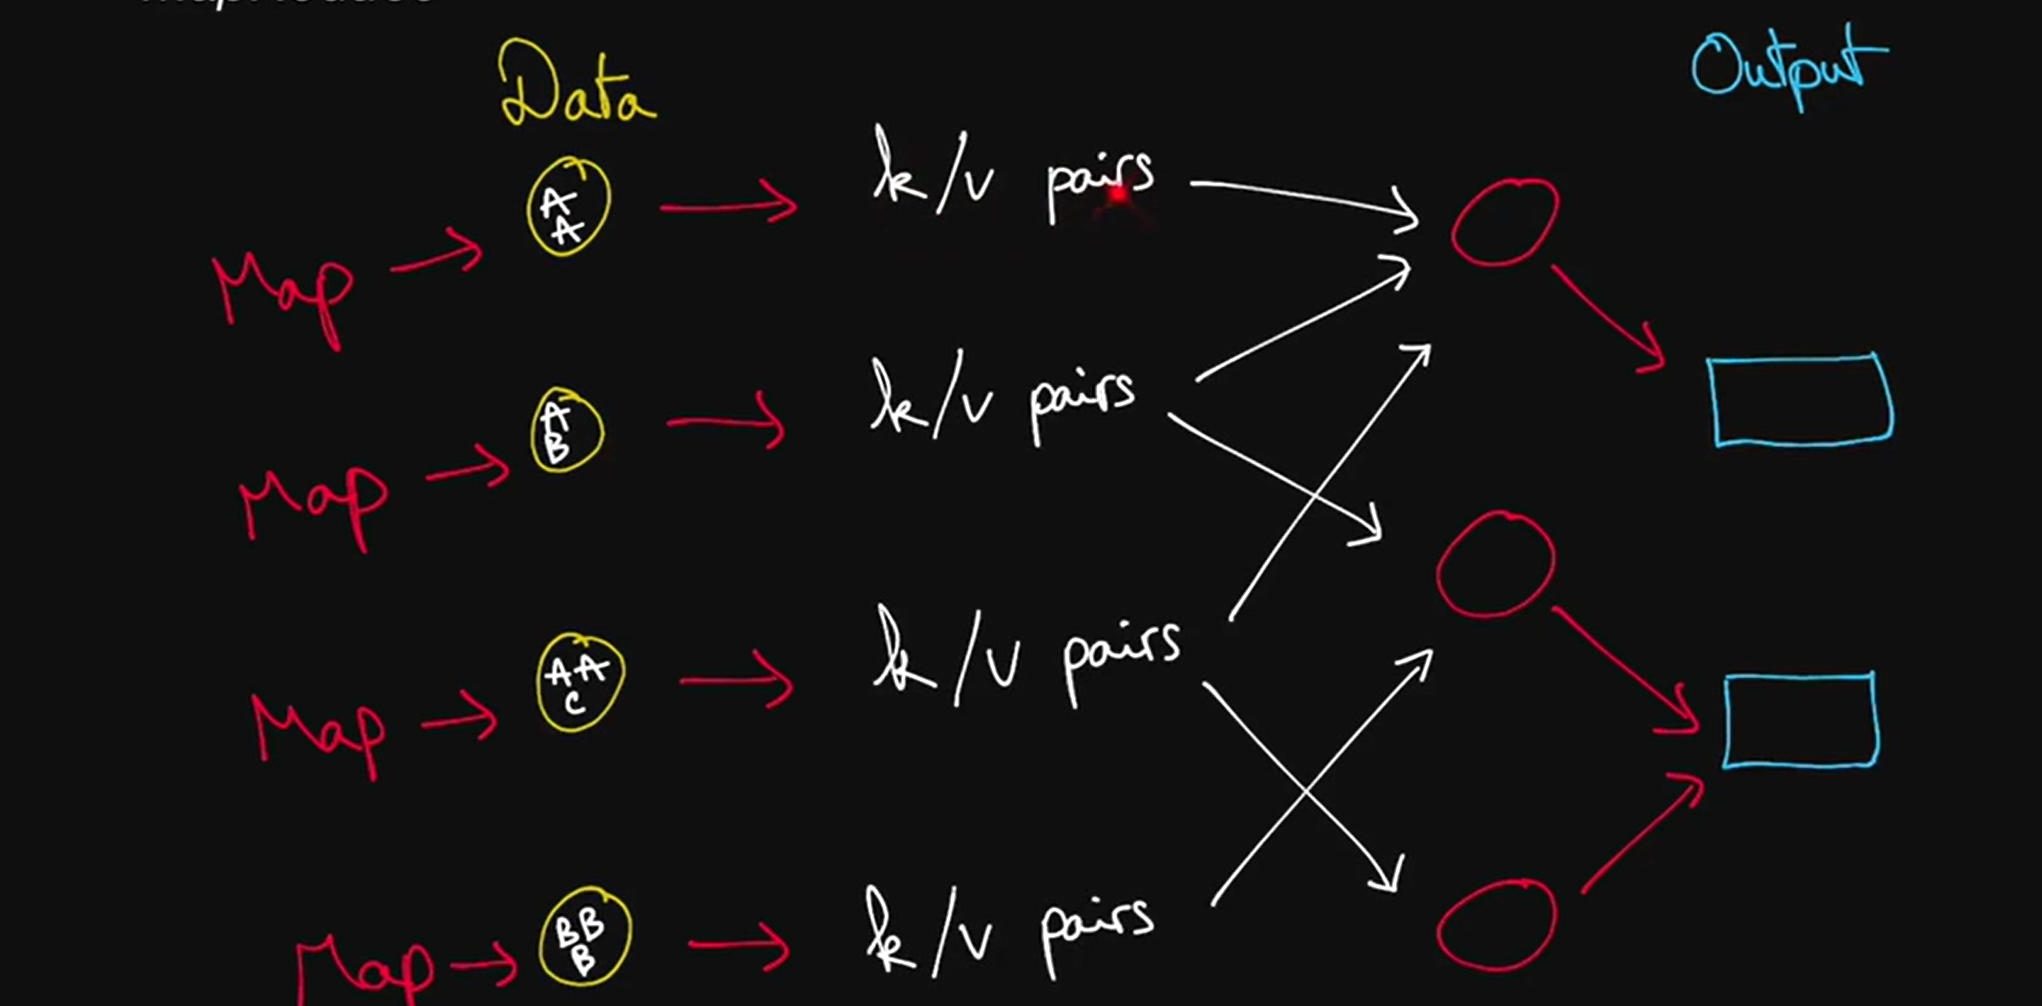 Data
Output
A
A
k/v pairs
Map
A
B
k/v pairs
Map
AA
C
k/v pairs
Map
BB
B
k/v pairs
Map